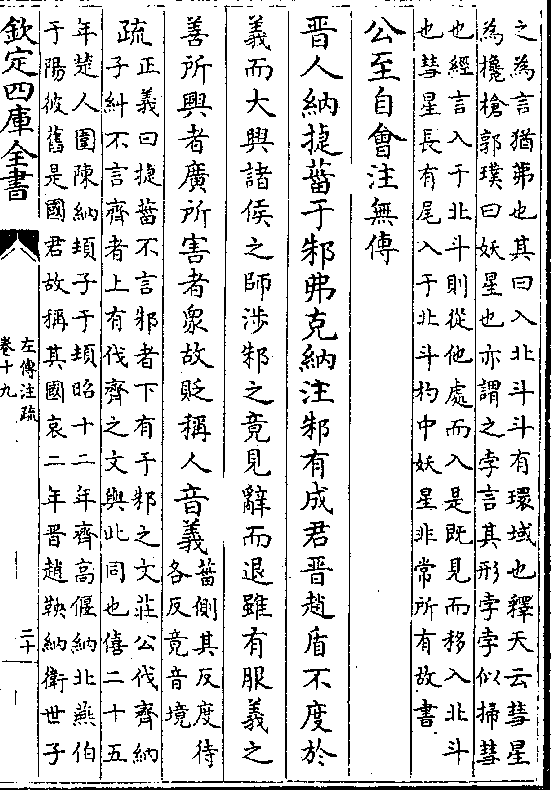 之為言猶茀也其曰入北斗斗有環域也釋天云彗星
為欃槍郭璞曰妖星也亦謂之孛言其形孛孛似掃彗
也經言入于北斗則從他處而入是既見而移入北斗
也彗星長有尾入于北斗杓中妖星非常所有故書
公至自會注無傳
晉人納捷菑于邾弗克納注邾有成君晉趙盾不度於
義而大興諸侯之師涉邾之竟見辭而退雖有服義之
善所興者廣所害者衆故貶稱人音義菑側其反度待
各反竟音境
疏正義曰捷菑不言邾者下有于邾之文莊公伐齊納
子糾不言齊者上有伐齊之文與此同也僖二十五
年楚人圍陳納頓子于頓昭十二年齊高偃納北燕伯
于陽彼舊是國君故稱其國哀二年晉趙鞅納衛世子
欽定四庫全書
左傳注疏
卷十九
二十